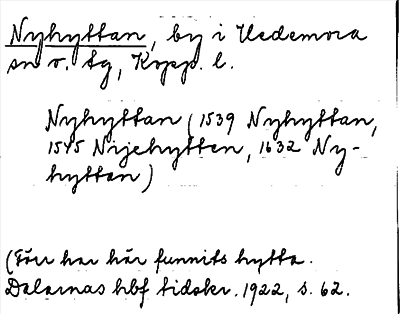 Nyhyttan, by i Hedemora
sn o. tg, Kopp. l.
Nyhyttan (1539 Nyhyttan,
1545 Nijehytten, 1632 Ny-
hyttan)
(Förr har här funnits hytta.
Dalarnas hbf tidskr. 1922, s. 62.